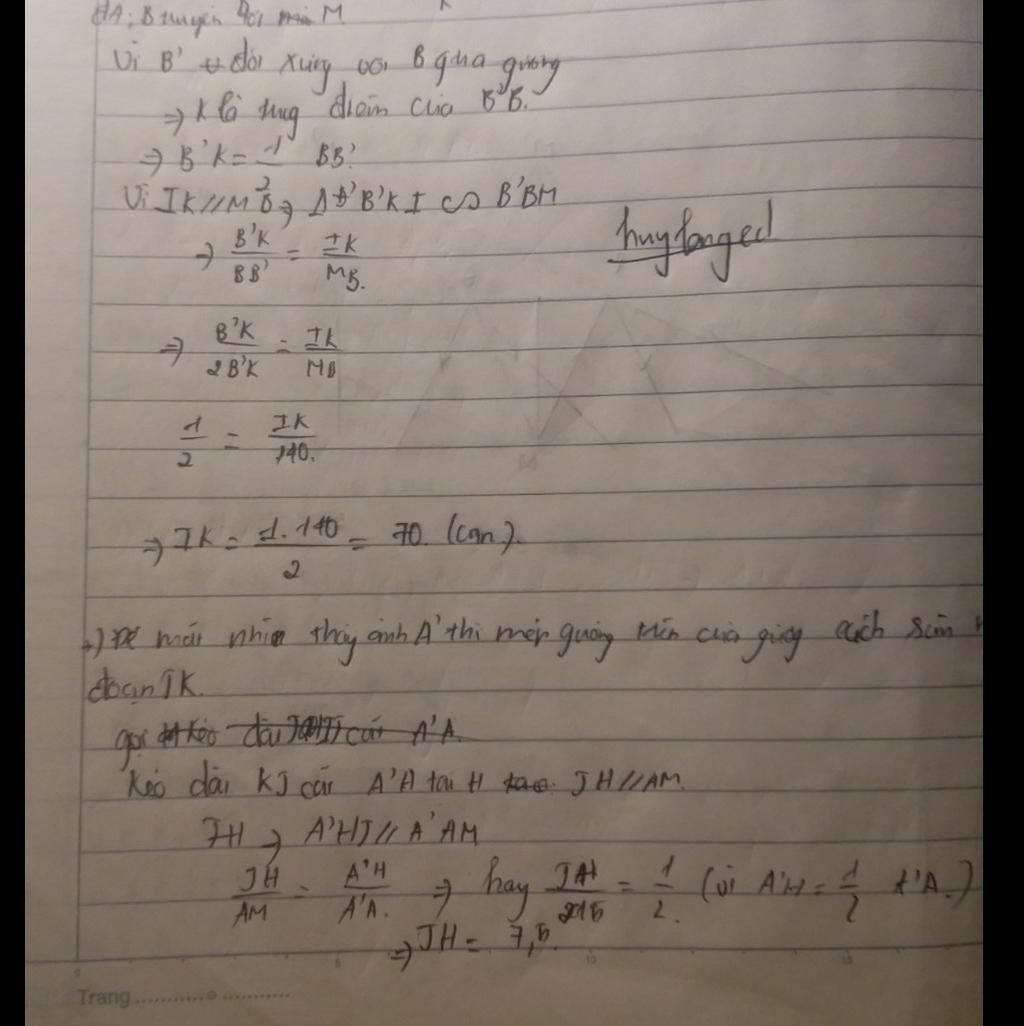 Vì B' đối xứng với B qua gương
=> K là trung điểm của B'B.
=> B'K = 1/2 BB'
Vì IK // MB => Δ B'KI ∽ B'BM
huylonged
=> B'K/BB' = IK/MB.
=> B'K/2B'K = IK/MB
1/2 = IK/140.
=> IK = 1.140/2 = 70. (cm).
+) Để mắt nhìn thấy ảnh A' thì mép gương trên của gương cách sàn
đoạn JK.
gọi
Kéo dài KJ cắt A'A tại H JH // AM.
JH => A'HJ // A'AM
JH/AM = A'H/A'A. => hay JH/15 = 1/2. (vì A'H = 1/2 A'A.)
=> JH = 7,5
Trang